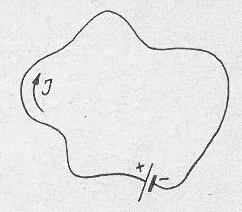 J
+ -